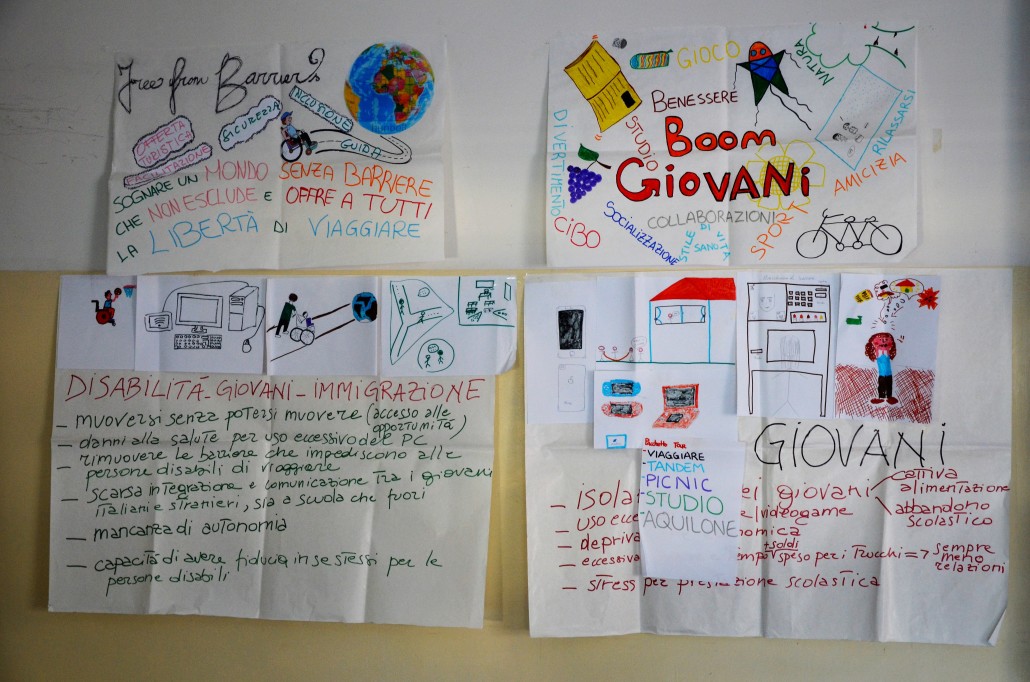 Free from Barriers?
OFFERTA
TURISTICA
FACILITAZIONE
SICUREZZA
INCLUSIONE
GUIDA
SOGNARE UN MONDO SENZA BARRIERE
CHE NON ESCLUDE E OFFRE A TUTTI
LA LIBERTÀ DI VIAGGIARE
GIOCO
NATURA
BENESSERE
DIVERTIMENTO
STUDIO
BOOM
GIOVANI
RILASSARSI
AMICIZIA
COLLABORAZIONI
SOCIALIZZAZIONE
STILE DI VITA
SANO
SPORT
CIBO
DISABILITÁ-GIOVANI-IMMIGRAZIONE
- muoversi senza potersi muovere (accesso alle
opportumità)
- danni alla salute per uso eccessivo del PC
- rimuovere le barriere che impediscono alle
persone disabili di viaggiare
- scarsa integrazione e comunicazione tra i giovani
italiani e stranieri, sia a scuola che fuori
- mancanza di autonomia
- capacità di avere fiducia in se stessi per le
persone disabili
GIOVANI
Pacchetto Tour
-VIAGGIARE
-TANDEM
-PICNIC
-STUDIO
-AQUILONE
- isola ei giovani
cattiva
alimentazione
abbandono
scolastico
- uso ecce videogame
- depriva omica
- eccessiva tempo + soldi speso per i trucchi => sempre
meno
relazioni
- stress per prestazione scolastica